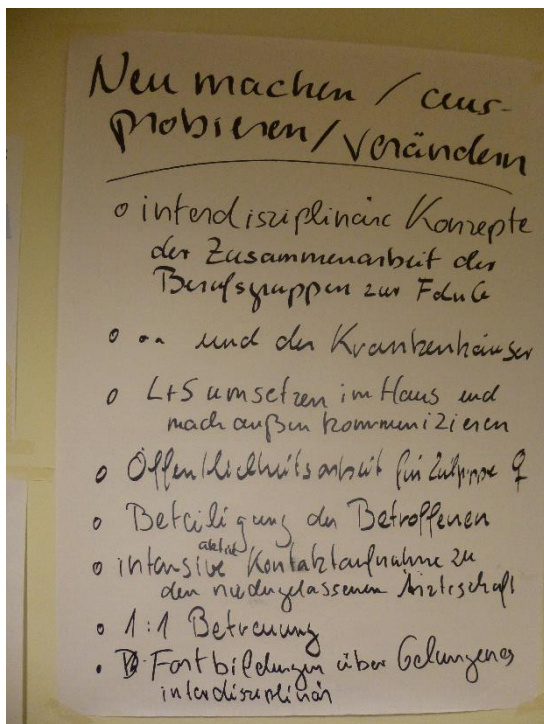 Neu machen / aus-
probieren / verändern
o interdisziplinäre Konzepte
der Zusammenarbeit der
Berufsgruppen zur FdnG
o .. und der Krankenhäuser
o L+S umsetzen im Haus und
nach außen kommunizieren
o Öffentlichkeitsarbeit für ♀
o Beteiligung der Betroffenen
aktive
o intensive Kontaktaufnahme zu
den niedergelassenen Ärzteschaft
• 1:1 Betreuung
• Fortbildungen über Gelungenes
interdisziplinär